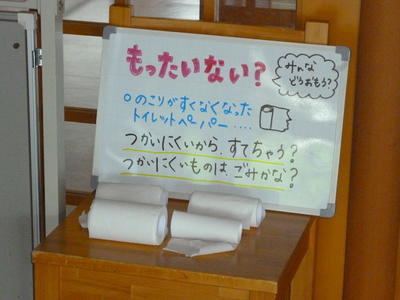 もったいない?
みんな
どうおもう?
○のこりがすくなくなった
トイレットペーパー....
つかいにくいから、すてちゃう?
つかいにくいものは、ごみかな?